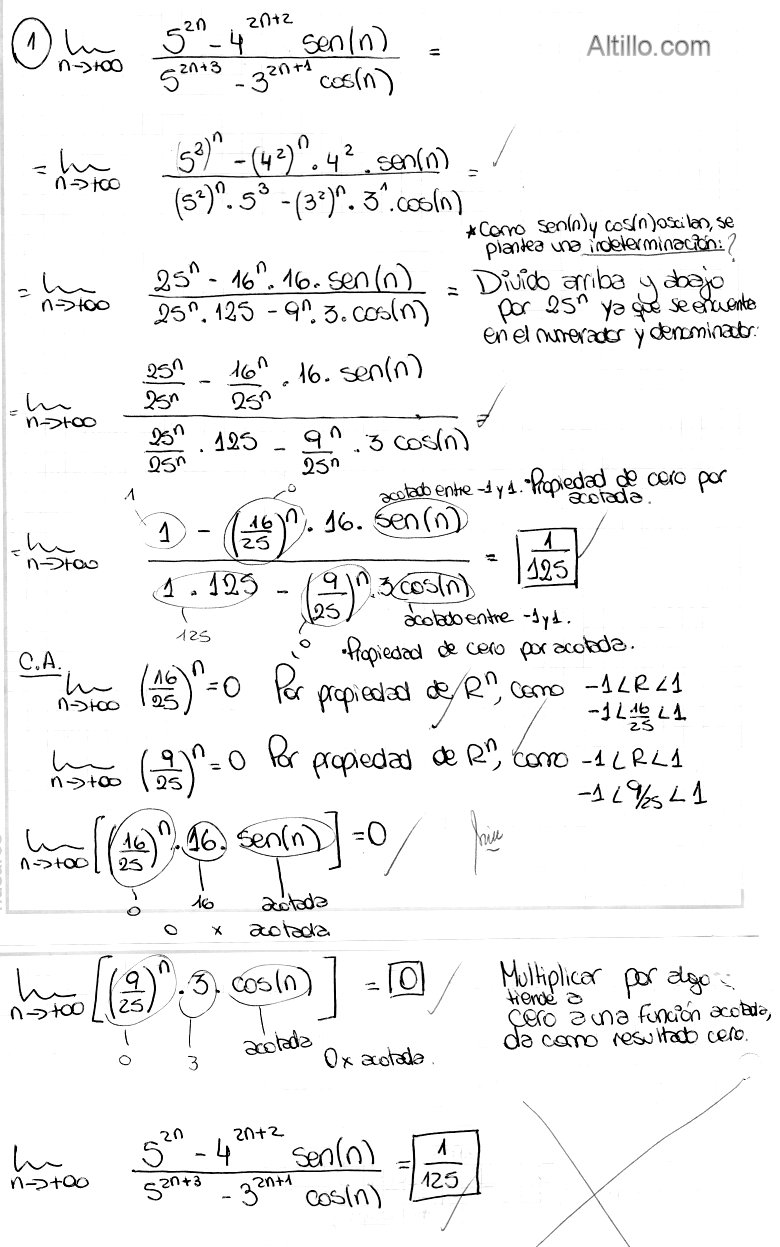 Altillo.com
① lim n→+∞ (5^{2n} - 4^{2n+2} sen(n)) / (5^{2n+3} - 3^{2n+1} cos(n)) =
= lim n→+∞ ((5²)ⁿ - (4²)ⁿ . 4² . sen(n)) / ((5²)ⁿ . 5³ - (3²)ⁿ . 3¹ . cos(n)) =
* Como sen(n) y cos(n) oscilan, se
plantea una indeterminación: ?
= lim n→+∞ (25ⁿ - 16ⁿ . 16 . sen(n)) / (25ⁿ . 125 - 9ⁿ . 3 . cos(n)) =
Divido arriba y abajo
por 25ⁿ ya que se encuentra
en el numerador y denominador.
= lim n→+∞ (25ⁿ/25ⁿ - 16ⁿ/25ⁿ . 16 . sen(n)) / (25ⁿ/25ⁿ . 125 - 9ⁿ/25ⁿ . 3 cos(n)) =
acotado entre -1 y 1. · Propiedad de cero por
acotada.
1 0
= lim n→+∞ (1 - (16/25)ⁿ . 16 . sen(n)) / (1 . 125 - (9/25)ⁿ . 3 cos(n)) = 1/125
125 0 acotado entre -1 y 1.
· Propiedad de cero por acotada.
C.A. lim n→+∞ (16/25)ⁿ = 0 Por propiedad de Rⁿ, como -1 < R < 1
-1 < 16/25 < 1
lim n→+∞ (9/25)ⁿ = 0 Por propiedad de Rⁿ, como -1 < R < 1
-1 < 9/25 < 1
lim n→+∞ [(16/25)ⁿ . 16 . sen(n)] = 0
0 16 acotada
0 x acotada
lim n→+∞ [(9/25)ⁿ . 3 . cos(n)] = 0
0 3 acotada 0 x acotada.
Multiplicar por algo
tiende a
cero a una función acotada,
da como resultado cero.
lim n→+∞ (5^{2n} - 4^{2n+2} sen(n)) / (5^{2n+3} - 3^{2n+1} cos(n)) = 1/125